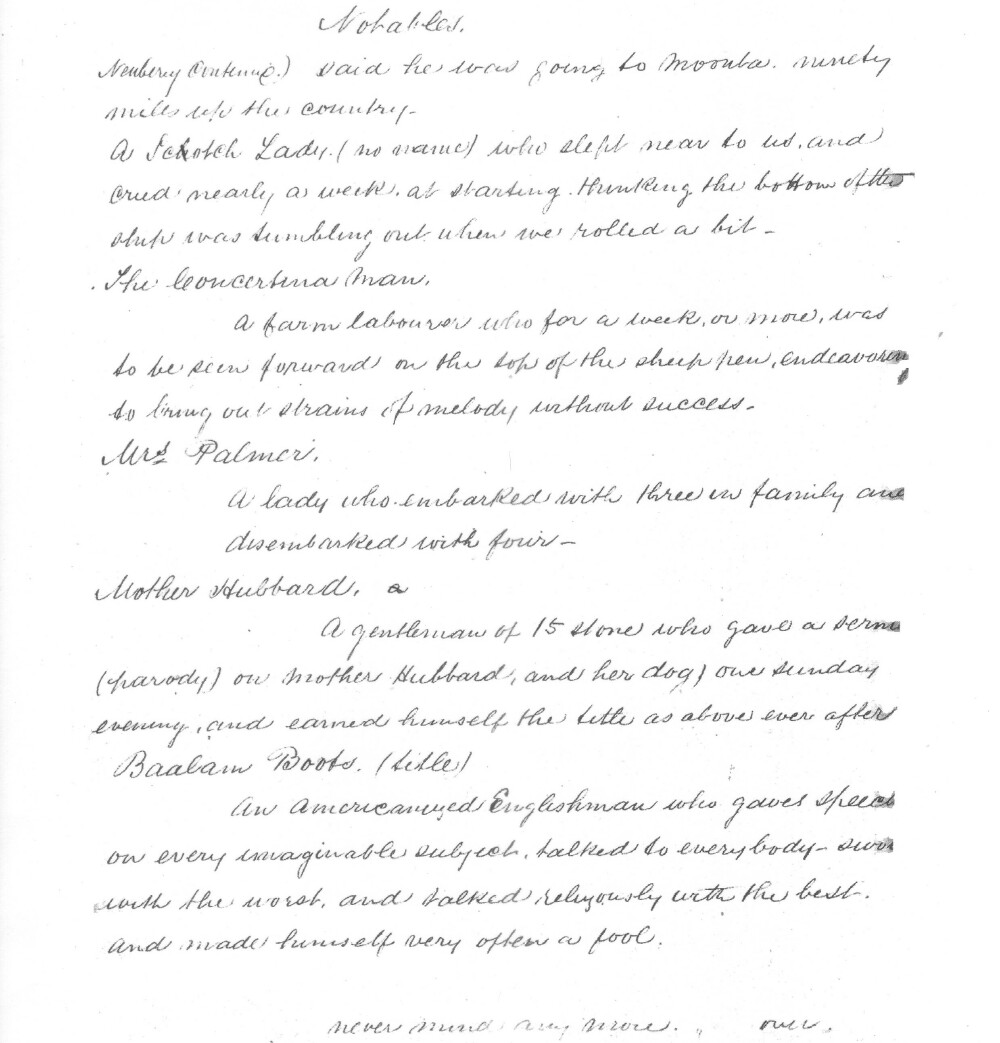 Notables.
Newberry Continued.) said he was going to Moonta. ninety
miles up the country.
A Schotch Lady. (no name) who slept near to us, and
cried nearly a week. at starting. thinking the bottom of the
ship was tumbling out when we rolled a bit -
. The Concertina Man.
A farm labourer who for a week, or more, was
to be seen forward on the top of the sheep pen, endeavoren
to bring out strains of melody without success.
Mrs Palmer.
A lady who embarked with three in family and
disembarked with four -
Mother Hubbard. a
A gentleman of 15 stone who gave a serm
(parody) on Mother Hubbard, and her dog) one sunday
evening, and earned himself the title as above ever after
Baalam Boots. (title)
An Americanized Englishman who gaves speech
on every imaginable subject, talked to everybody - swor
with the worst, and talked religously with the best.
and made himself very often a fool.
never mind any more. over.